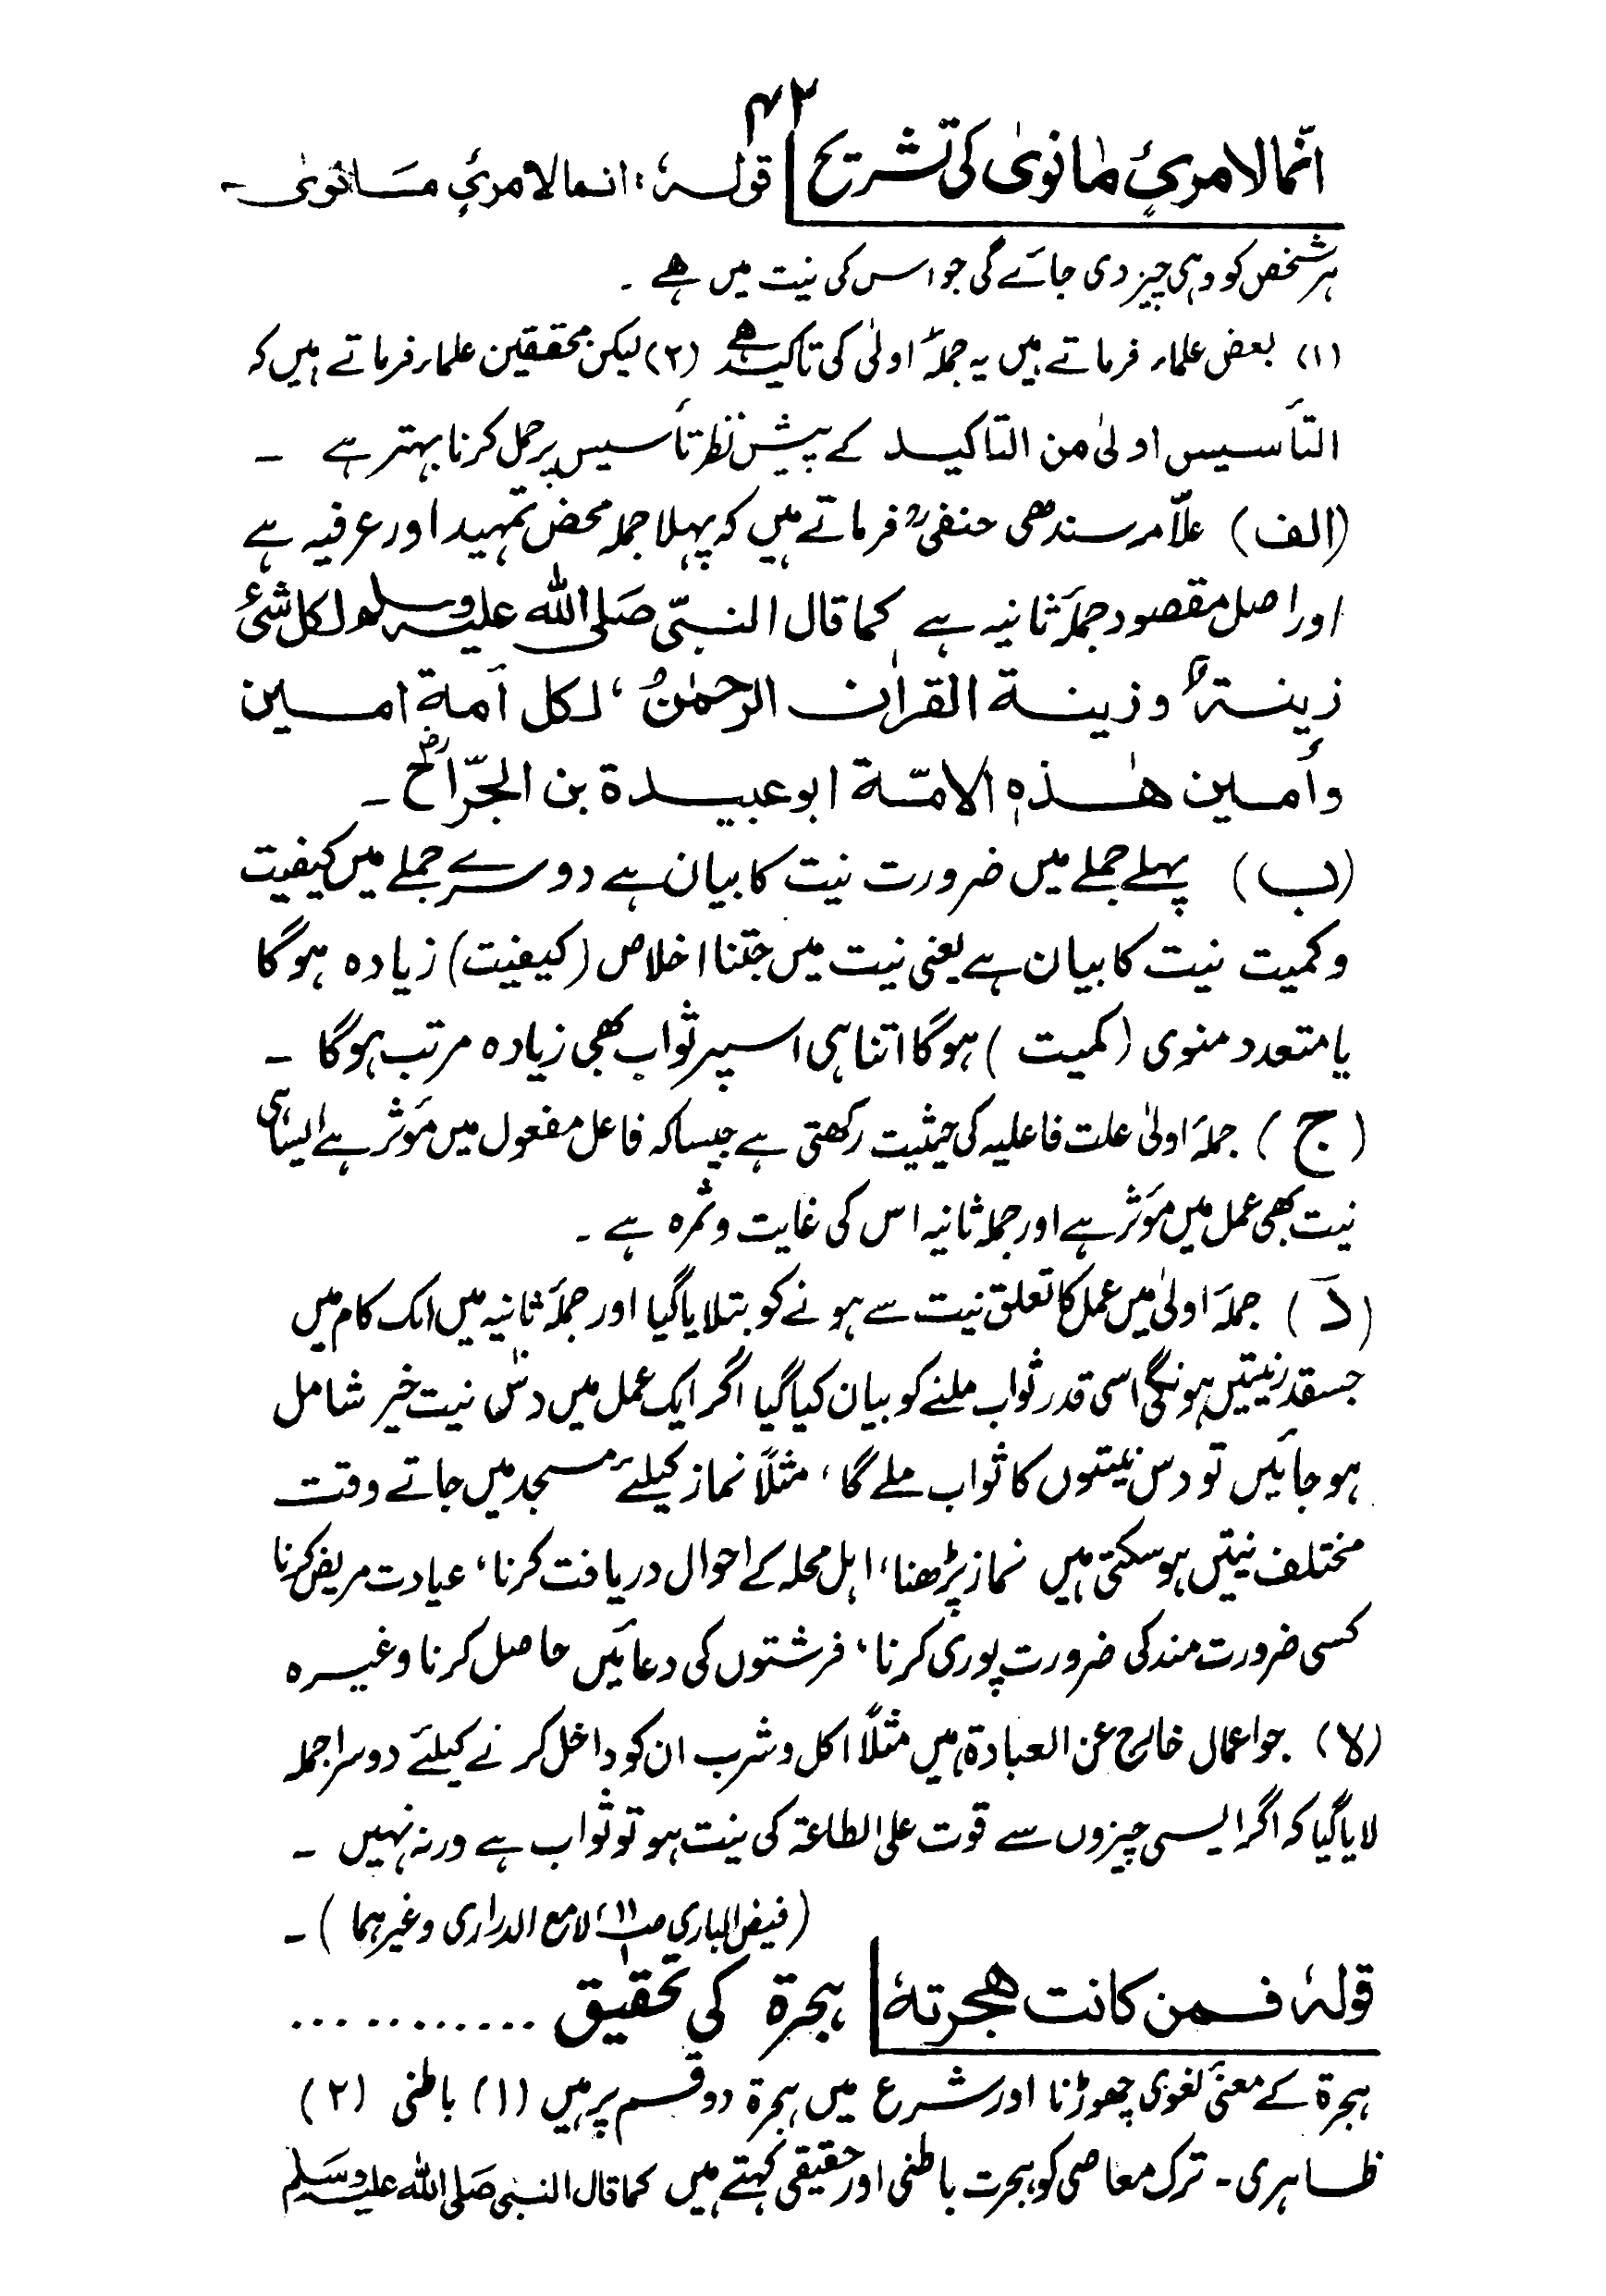 ۴۲
انّما لامرئٍ مانویٰ کی تشریح قولہٗ: انما لامرئٍ مانویٰ۔
ہر شخص کو وہی چیز دی جائے گی جو اس کی نیت میں ہے ۔
(۱) بعض علماء فرماتے ہیں یہ جملۂ اولیٰ کی تاکید ہے (۲) لیکن محققین علماء فرماتے ہیں کہ
التأسیس اولیٰ من التاکید کے پیش نظر تأسیس پر حمل کرنا بہتر ہے ۔
(الف) علّامہ سندھی حنفیؒ فرماتے ہیں کہ پہلا جملہ محض تمہید اور عرفیہ ہے
اور اصل مقصود جملۂ ثانیہ ہے کما قال النبیّ صلی اللہ علیہ وسلم لکل شئ
زینۃٌ وزینۃ القراٰن الرحمٰنُ، لکل اُمۃ امین
وأمین ھٰذہ الامّۃ ابوعبیدۃ بن الجرّاحؓ ۔
(ب) پہلے جملے میں ضرورت نیت کا بیان ہے دوسرے جملے میں کیفیت
وکمیت نیت کا بیان ہے یعنی نیت میں جتنا اخلاص (کیفیت) زیادہ ہوگا
یا متعدد منوی (کمیت) ہوگا اتنا ہی اسپر ثواب بھی زیادہ مرتب ہوگا ۔
(ج) جملۂ اولیٰ علت فاعلیہ کی حیثیت رکھتی ہے جیسا کہ فاعل مفعول میں مؤثر ہے ایسا ہی
نیت بھی عمل میں مؤثر ہے اور جملۂ ثانیہ اس کی غایت وثمرہ ہے ۔
(د) جملۂ اولیٰ میں عمل کا تعلق نیت سے ہونے کو بتلایا گیا اور جملۂ ثانیہ میں ایک کام میں
جسقدر نیتیں ہونگی اسی قدر ثواب ملنے کو بیان کیا گیا اگر ایک عمل میں دس نیت خیر شامل
ہوجائیں تو دس نیتوں کا ثواب ملے گا، مثلاً نماز کیلئے مسجد میں جاتے وقت
مختلف نیتیں ہوسکتی ہیں نماز پڑھنا، اہل محلہ کے احوال دریافت کرنا، عیادت مریض کرنا
کسی ضرورت مند کی ضرورت پوری کرنا، فرشتوں کی دعائیں حاصل کرنا وغیرہ
(ہ) جو اعمال خارج عن العبادۃ ہیں مثلاً اکل وشرب ان کو داخل کرنے کیلئے دوسرا جملہ
لایا گیا کہ اگر ایسی چیزوں سے قوت علی الطاعۃ کی نیت ہو تو ثواب ہے ورنہ نہیں ۔
(فیض الباری ص۱۱، لامع الدراری وغیرہما) ۔
قولہٗ فمن کانت ھجرتہٗ ہجرۃ کی تحقیق ............
ہجرۃ کے معنیٰ لغوی چھوڑنا اور شرع میں ہجرۃ دو قسم پر ہیں (۱) باطنی (۲)
ظاہری ۔ ترک معاصی کو ہجرت باطنی اور حقیقی کہتے ہیں کما قال النبی صلی اللہ علیہ وسلم